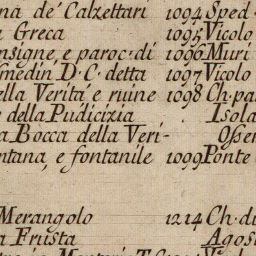 na de' Calzettari 1094 Sped
a Greca 1095 Vicolo
nsigne, e paroc: di 1096 Muri
smedin D. C. detta 1097 Vicolo
ella Verità e ruine 1098 Ch. pa
e della Pudicizia . Isola
a Bocca della Veri- Ospen
ntana, e fontanile 1099 Ponte
Merangolo 1214 Ch. di
a Frusta Agos